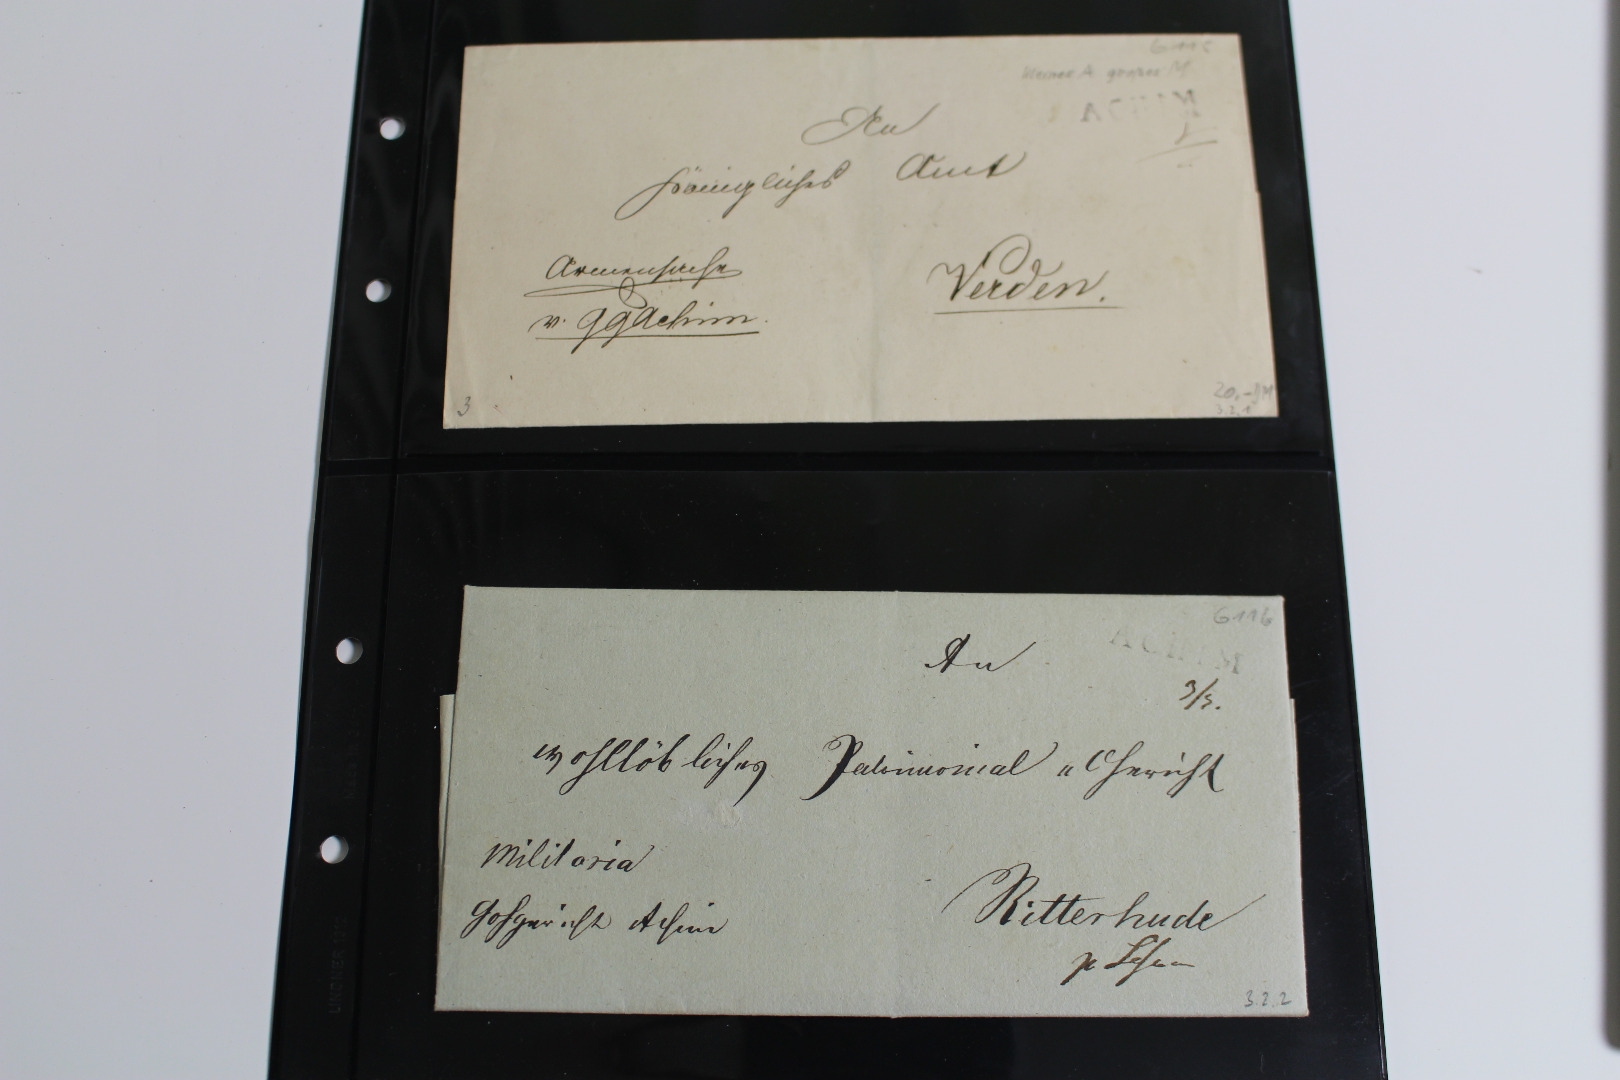 G 115
kleines A großes M
ACHIM
An
Königliches Amt
Armensache
v. GgAchim.
Verden.
20,-DM
3.2.1
3
G 116
ACHIM
An
3/3.
wohllöbliches Patrimonial Gericht
Militaria
Gohgericht Achim
Ritterhude
p Lesum
3.2.2